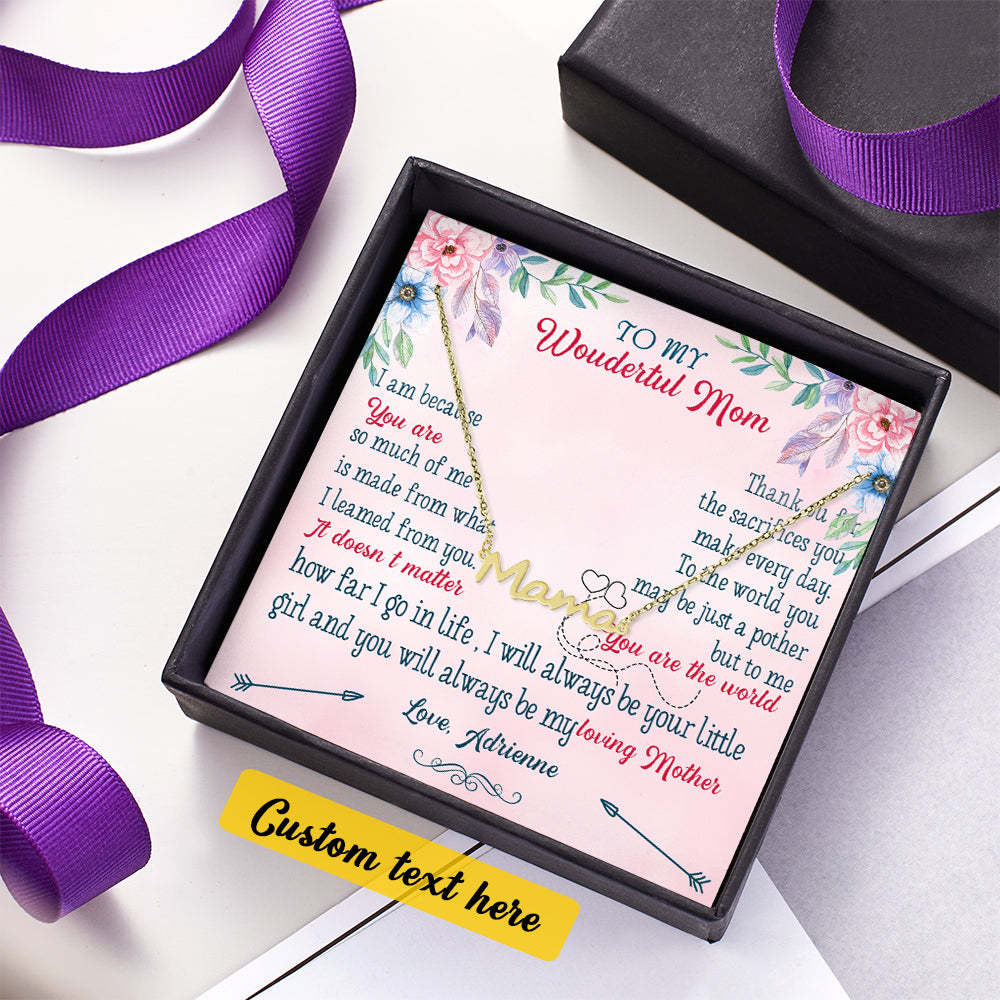 TO MY
Wouderful Mom
I am because
You are
so much of me
is made from what
I leamed from you.
It doesn t matter
how far I go in life, I will always be your little
girl and you will always be my loving Mother
Thank you for
the sacrifices you
make every day.
To the world you
may be just a pother
but to me
You are the world
Love, Adrienne
Mama
Custom text here